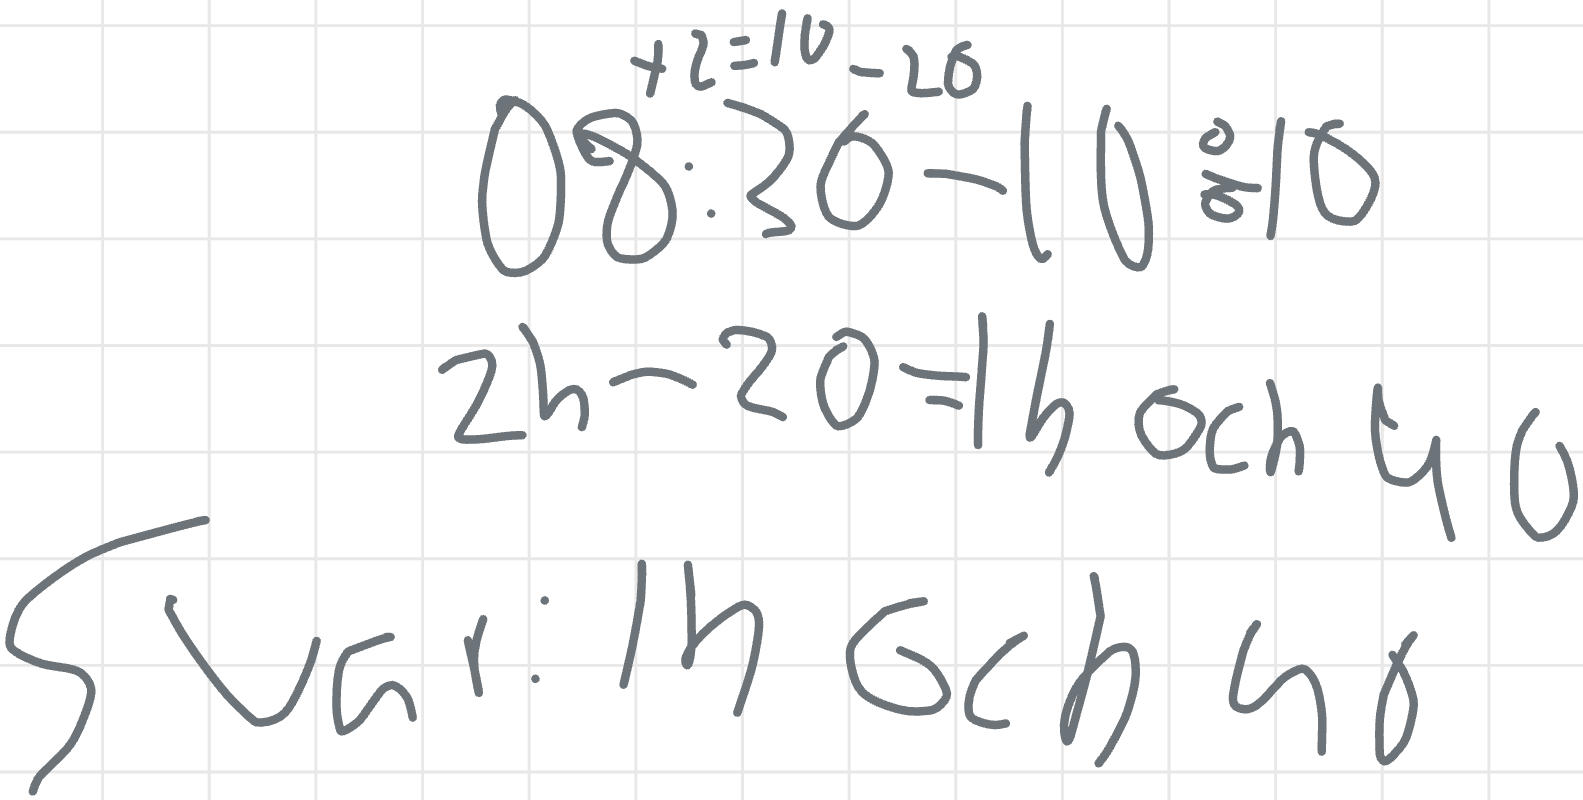 +2=10 -20
08:30-10:10
2h-20=1h och 40
Svar: 1h och 40